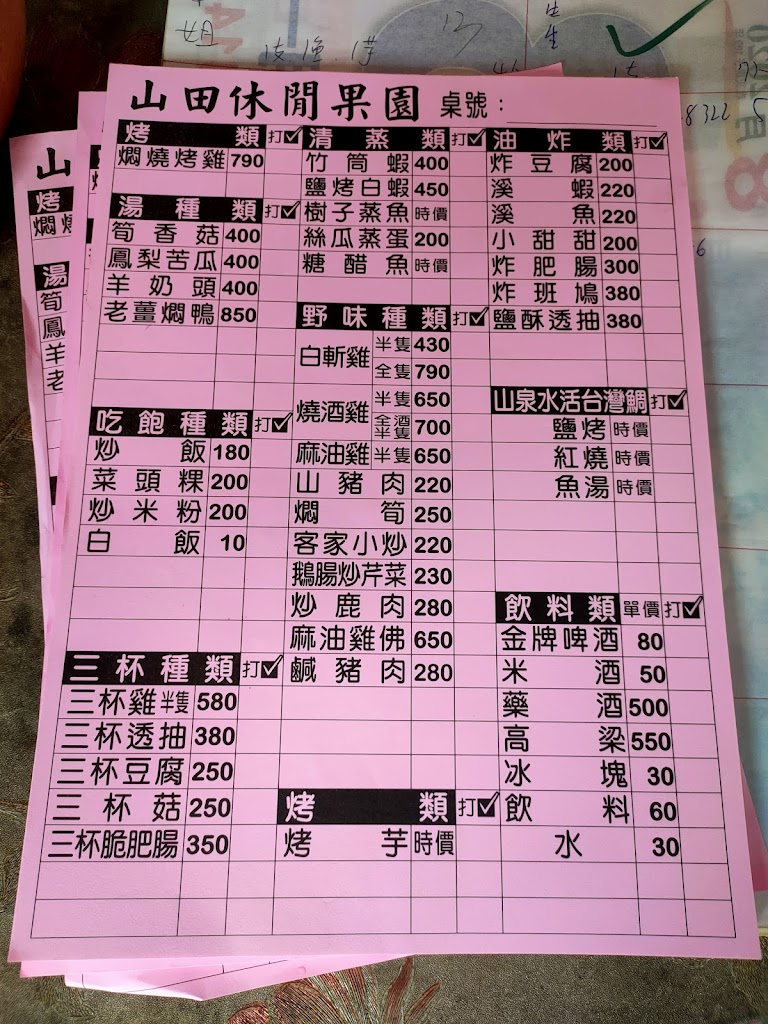 山田休閒果園 桌號:
烤類 打✓
燜燒烤雞 790
湯種類 打✓
筍香菇 400
鳳梨苦瓜 400
羊奶頭 400
老薑燜鴨 850
吃飽種類 打✓
炒飯 180
菜頭粿 200
炒米粉 200
白飯 10
三杯種類 打✓
三杯雞 半隻 580
三杯透抽 380
三杯豆腐 250
三杯菇 250
三杯脆肥腸 350
清蒸類 打✓
竹筒蝦 400
鹽烤白蝦 450
樹子蒸魚 時價
絲瓜蒸蛋 200
糖醋魚 時價
野味種類 打✓
白斬雞 半隻 430
全隻 790
燒酒雞 半隻 650
金酒半隻 700
麻油雞 半隻 650
山豬肉 220
燜筍 250
客家小炒 220
鵝腸炒芹菜 230
炒鹿肉 280
麻油雞佛 650
鹹豬肉 280
烤類 打✓
烤芋 時價
油炸類 打✓
炸豆腐 200
溪蝦 220
溪魚 220
小甜甜 200
炸肥腸 300
炸班鳩 380
鹽酥透抽 380
山泉水活台灣鯛 打✓
鹽烤 時價
紅燒 時價
魚湯 時價
飲料類 單價 打✓
金牌啤酒 80
米酒 50
藥酒 500
高梁 550
冰塊 30
飲料 60
水 30